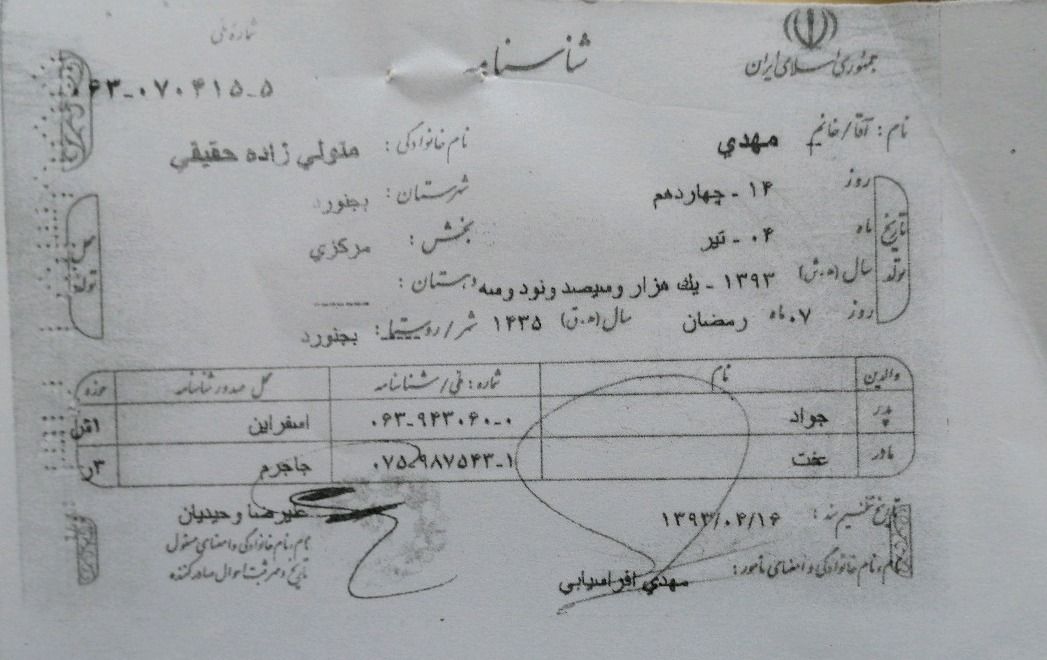 جمهوری اسلامی ایران
شناسنامه
شماره ملی
۰۶۳-۰۷۰۴۱۵-۵
نام: آقا/خانم مهدي نام خانوادگی: متولي زاده حقيقي
روز ۱۴ - چهاردهم شهرستان: بجنورد
تاریخ تولد ماه ۰۴ - تير بخش: مركزي
محل تولد
سال (ه.ش) ۱۳۹۳ - يك هزار وسيصد ونود وسه دهستان: ------
روز ۰۷ ماه رمضان سال (ه.ق) ۱۴۳۵ شهر/روستا: بجنورد
والدین نام شماره: ملی/شناسنامه محل صدور شناسنامه حوزه
پدر جواد ۰۶۳-۹۴۳۰۶۰-۰ اسفراين
مادر عفت ۰۷۵-۹۸۷۵۴۳-۱ جاجرم ۳ر
تاریخ تنظیم سند: ۱۳۹۳/۰۴/۱۶ عليرضا وحيديان
نام و نام خانوادگی و امضای مأمور: مهدي افراسيابي
نام، نام خانوادگی و امضای مسئول
تاریخ و مهر ثبت احوال صادرکننده